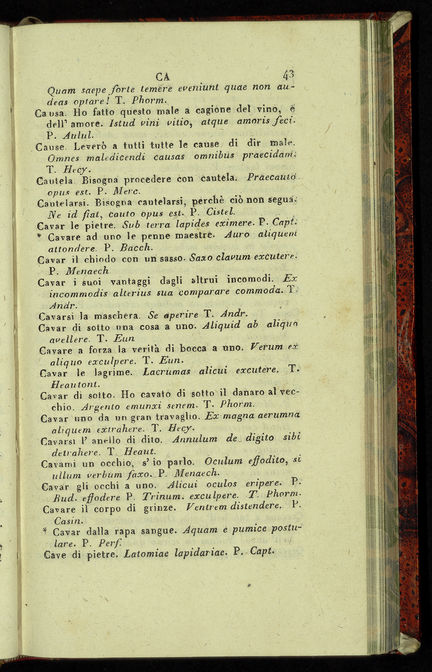 CA 43
Quam saepe forte temere eveniunt quae non au-
deas optare! T. Phorm.
Causa. Ho fatto questo male a cagione del vino, e
dell' amore. Istud vini vitio, atque amoris feci.
P. Aulul.
Cause. Leverò a tutti tutte le cause di dir male.
Omnes maledicendi causas omnibus praecidam.
T. Hecy.
Cautela. Bisogna procedere con cautela. Praecauto
opus est. P. Merc.
Cautelarsi. Bisogna cautelarsi, perchè ciò non segua.
Ne id fiat, cauto opus est. P. Cistel.
Cavar le pietre. Sub terra lapides eximere. P. Capt.
* Cavare ad uno le penne maestre. Auro aliquem
attondere. P. Bacch.
Cavar il chiodo con un sasso. Saxo clavum excutere.
P. Menaech
Cavar i suoi vantaggi dagli altrui incomodi. Ex
incommodis alterius sua comparare commoda. T.
Andr.
Cavarsi la maschera. Se aperire T. Andr.
Cavar di sotto una cosa a uno. Aliquid ab aliquo
avellere. T. Eun
Cavare a forza la verità di bocca a uno. Verum ex
aliquo exculpere. T. Eun.
Cavar le lagrime. Lacrumas alicui excutere. T.
Heautont.
Cavar di sotto. Ho cavato di sotto il danaro al vec-
chio. Argento emunxi senem. T. Phorm.
Cavar uno da un gran travaglio. Ex magna aerumna
aliquem extrahere. T. Hecy.
Cavarsi l' anello di dito. Annulum de digito sibi
detrahere. T. Heaut.
Cavami un occhio, s' io parlo. Oculum effodito, si
ullum verbum faxo. P. Menaech.
Cavar gli occhi a uno. Alicui oculos eripere. P.
Rud. effodere P. Trinum. exculpere. T. Phorm.
Cavare il corpo di grinze. Ventrem distendere. P.
Casin.
* Cavar dalla rapa sangue. Aquam e pumice postu-
lare. P. Pers.
Cave di pietre. Latomiae lapidariae. P. Capt.